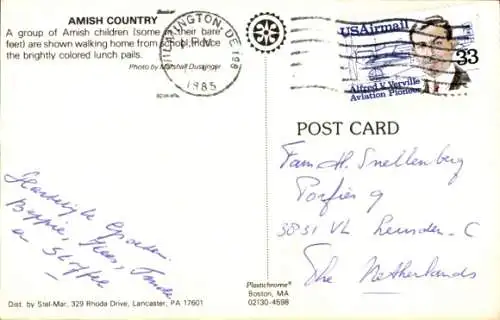 AMISH COUNTRY
A group of Amish children (some in their bare
feet) are shown walking home from school. Notice
the brightly colored lunch pails.
Photo by Marshall Dussinger
WILMINGTON, DE 198
PM
1985
USAirmail
33
Alfred V. Verville
Aviation Pioneer
POST CARD
Fam H. Snellenberg
9
3831 VL Leusden-C
The Netherlands
Hartelijke Groeten
Beppie, Kees,
en
Plastichrome®
Boston, MA
02130-4598
Dist. by Stel-Mar, 329 Rhoda Drive, Lancaster, PA 17601